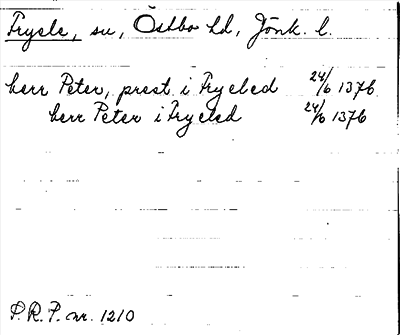 Fryele, sn, Östbo hd, Jönk. l.
herr Peter, prest i Fryeled 24/6 1376
herr Peter i Fryeled 24/6 1376
P.R.P. nr. 1210